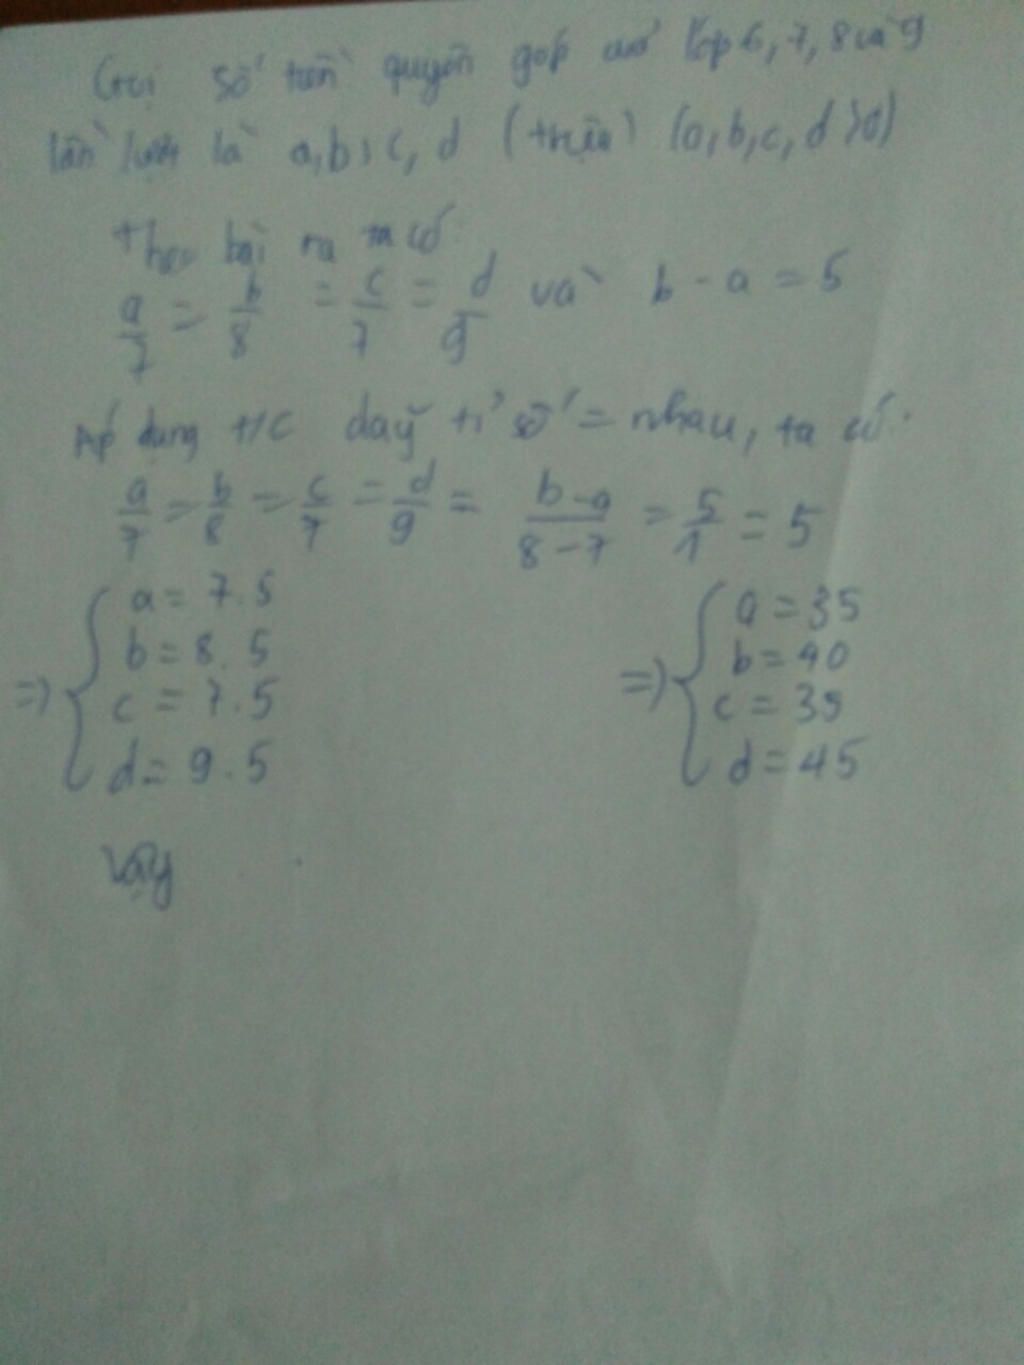 Gọi số tiền quyên góp của lớp 6, 7, 8 và 9
lần lượt là a, b, c, d (triệu) (a, b, c, d > 0)
theo bài ra ta có
a/7 = b/8 = c/7 = d/9 và b - a = 5
Áp dụng t/c dãy tỉ số = nhau, ta có
a/7 = b/8 = c/7 = d/9 = b-a/8-7 = 5/1 = 5
=> { a = 7.5 => { a = 35
b = 8.5 b = 40
c = 7.5 c = 35
d = 9.5 d = 45
Vậy